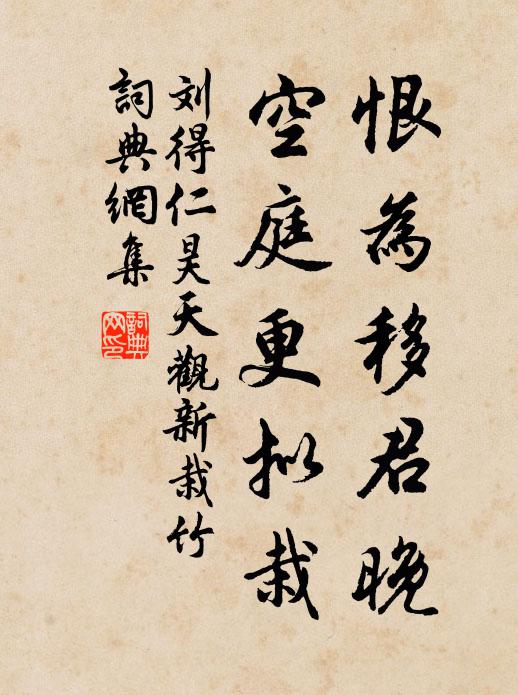 恨為移君晚
空庭更拟栽
刘得仁昊天觀新栽竹
詞典網集
詞典網印